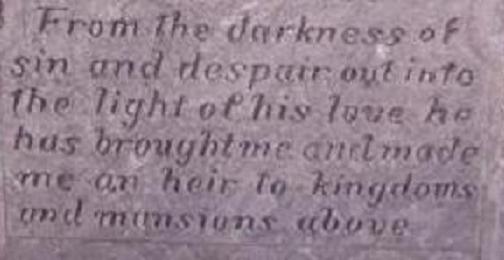 From the darkness of
sin and despair out into
the light of his love he
has brought me and made
me an heir to kingdoms
and mansions above